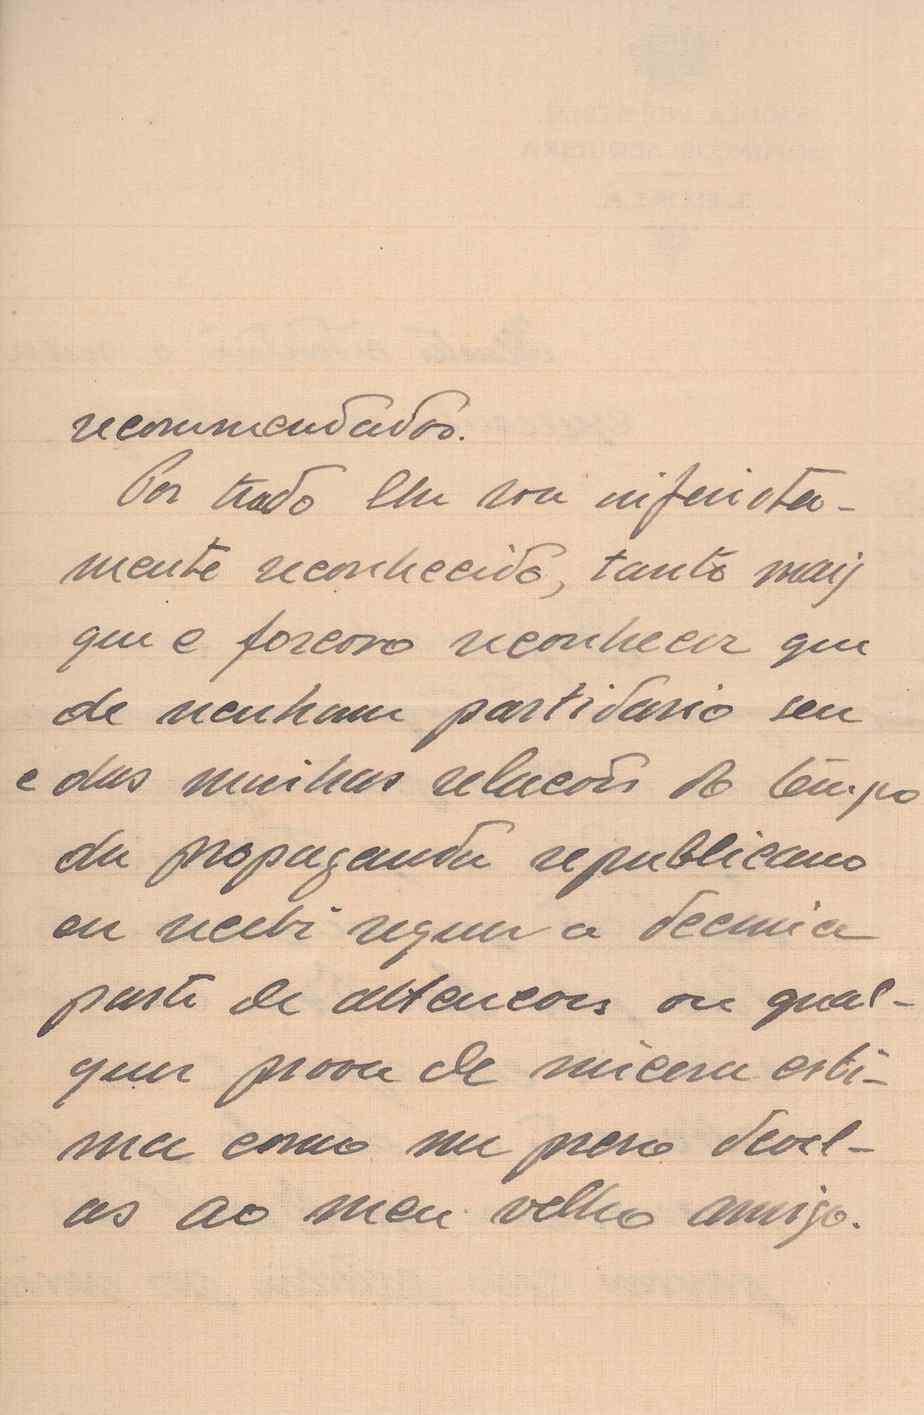 recommendados.
Por tudo lhe sou infinita-
mente reconhecido, tanto mais
que e forcoso reconhecer que
de nenhum partidario seu
e das minhas relacões do tempo
da propaganda republicana
eu recebi sequer a decima
parte de attencoes ou qual-
quer prova de sincera esti-
ma como me preso devel-
as ao meu velho amigo.